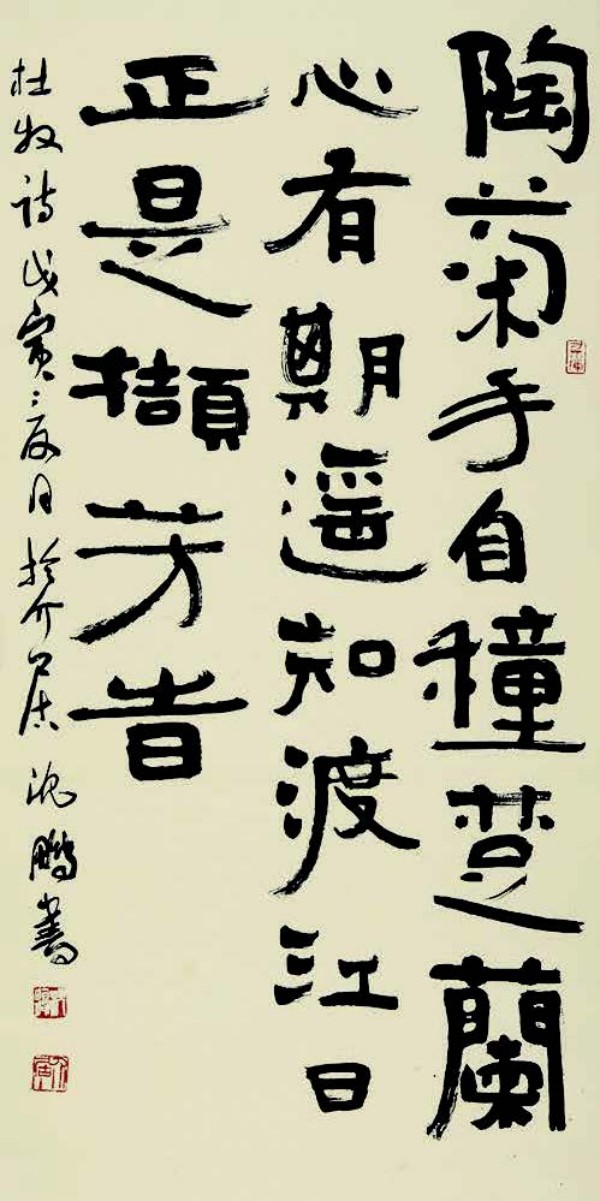 陶菊手自穜楚蘭
心有期遥知渡江日
正是擷芳旹
杜牧诗戊寅夏月於介居沈鵬書